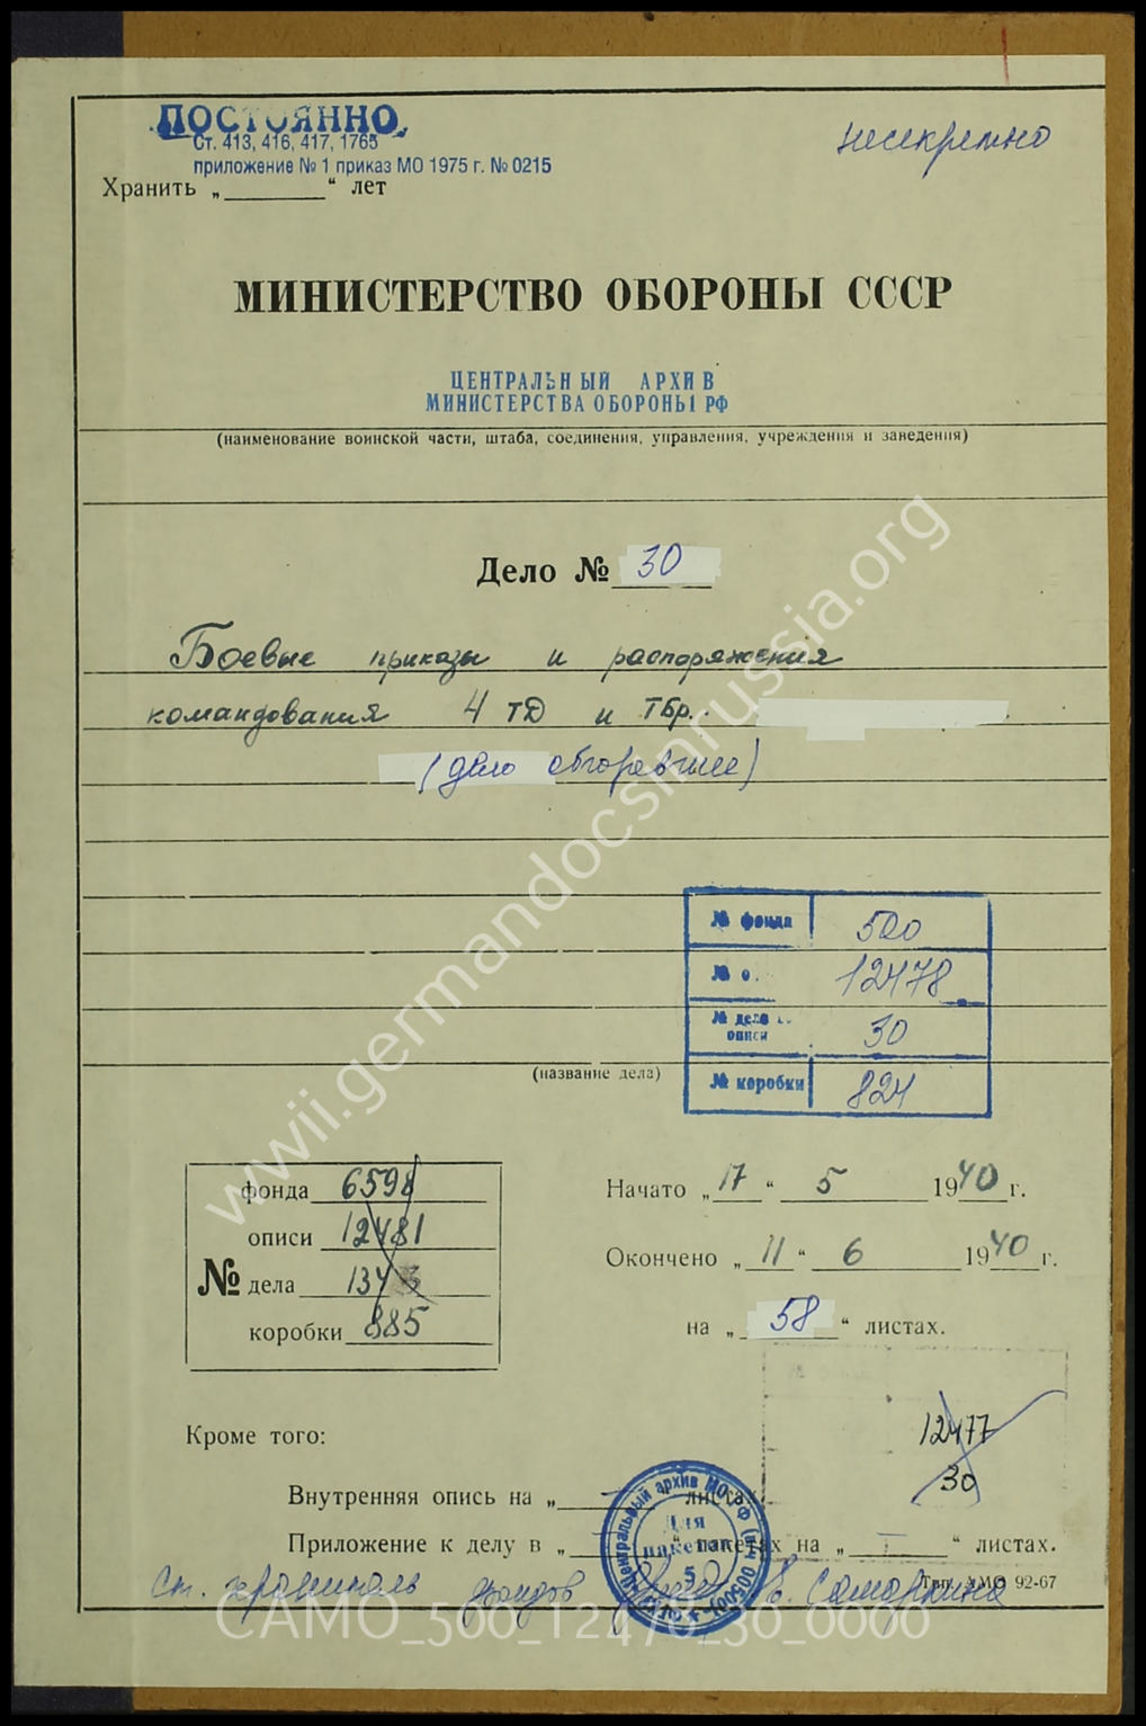 ПОСТОЯННО
Ст. 413, 416, 417, 1765
приложение № 1 приказ МО 1975 г. № 0215
несекретно
Хранить „ “ лет
МИНИСТЕРСТВО ОБОРОНЫ СССР
ЦЕНТРАЛЬНЫЙ АРХИВ
МИНИСТЕРСТВА ОБОРОНЫ РФ
(наименование воинской части, штаба, соединения, управления, учреждения и заведения)
Дело № 30
Боевые приказы и распоряжения
командования 4 ТД и ТБр.
(дело обгоревшее)
№ фонда 500
№ о. 12478
№ дела
описи 30
№ коробки 824
(название дела)
фонда 6598
описи 12481
№ дела 134
коробки 885
Начато „17“ 5 1940 г.
Окончено „11“ 6 1940 г.
на „58“ листах.
12477
30
Кроме того:
Внутренняя опись на „ листа
Приложение к делу в „ “ пакетах на „ “ листах.
Центральный архив МО РФ
Для
пакетов
5
Ст. хранитель фондов В. Самаркина
Тип. АМО 92-67
wwii.germandocsinrussia.org
CAMO_500_12478_30_0000